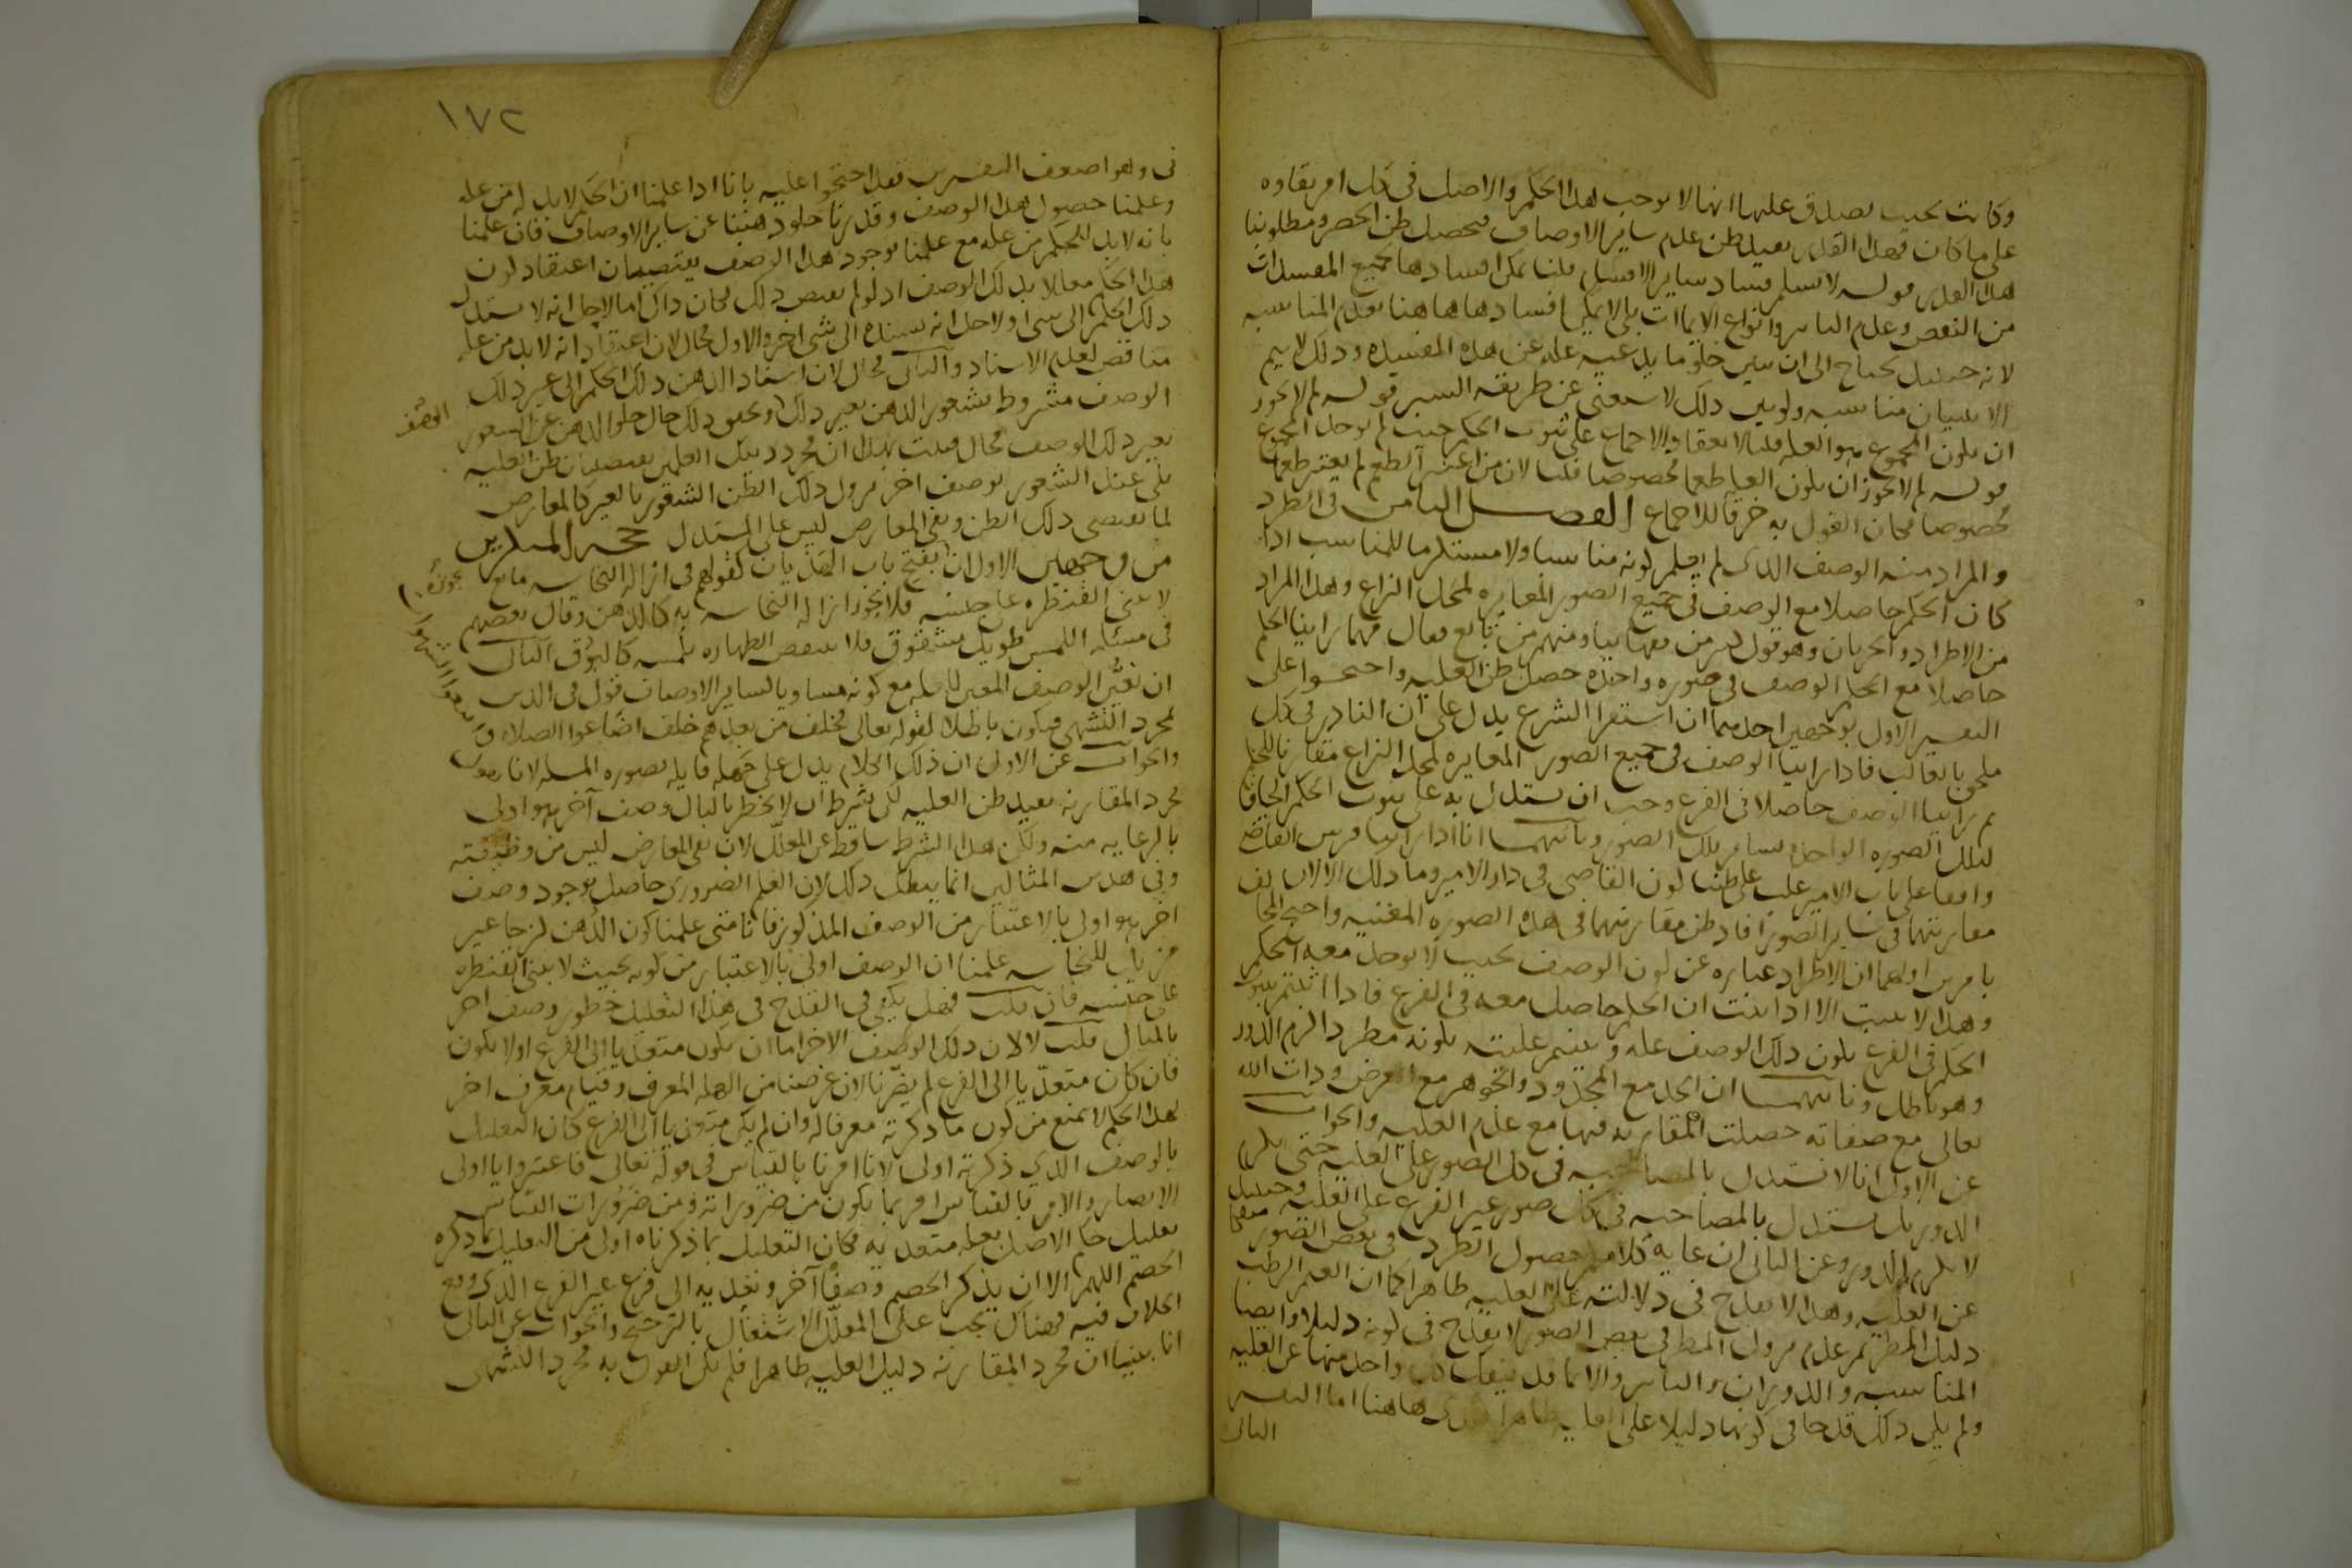 وكانت بحيث يصدق عليها انها لا توجب هذا الحكم والاصل في كل امر بقاوه
على ما كان فهذا القدر يفيد ظن عدم ساير الاوصاف فيحصل ظن الحصر ومطلوبنا
هذا القدر قوله لا نسلم فساد ساير الاقسام قلنا يمكن افسادها بجميع المفسدات
من النقض وعدم التاثير وانواع الايماات بلى لا يمكن افسادها هاهنا بعدم المناسبه
لانه حينئذ يحتاج الى ان يبين خلو ما يدعيه عله عن هذه المفسده وذلك لا يتم
الا ببيان مناسبه ولو بين ذلك لاستغنى عن طريقه السبر قوله لم لا يجوز
ان يكون المجموع هو العله قلنا لانعقاد الاجماع على ثبوت الحكم حيث لم يوجد المجموع
قوله لم لا يجوز ان يكون العله طعما مخصوصا قلنا لان من اعتبر الطعم لم يعتبر طعما
مخصوصا فكان القول به خرقا للاجماع الفصل الثامن في الطرد
والمراد منه الوصف الذي لم يعلم كونه مناسبا ولا مستلزما للمناسب اذا
كان الحكم حاصلا مع الوصف في جميع الصور المغايره لمحل النزاع وهذا المراد
من الاطراد والجريان وهو قول كثير من فقهاينا ومنهم من بالغ فقال مهما راينا الحكم
حاصلا مع الحكم الوصف في صوره واحده حصل ظن العليه واحتجوا على
التفسير الاول بوجهين احدهما ان استقرا الشرع يدل على ان النادر في كل
ملحق بالغالب فاذا راينا الوصف في جميع الصور المغايره لمحل النزاع مقارنا للحكم
ثم راينا الوصف حاصلا في الفرع وجب ان نستدل به على ثبوت الحكم الحاقا
لتلك الصوره الواحده بساير تلك الصور وثانيهما انا اذا راينا فرس القاضي
واقفا على باب الامير غلب على ظننا كون القاضي في دار الامير وما ذلك الا لان
مقارنتهما في ساير الصور افاد ظن مقارنتهما في هذه الصوره المعينه واحتج المخالف
بامرين اولهما ان الاطراد عباره عن كون الوصف بحيث لا يوجد معه الحكم
وهذا لا يثبت الا اذا ثبت ان الحكم حاصل معه في الفرع فاذا اثبتم ثبوت
الحكم في الفرع بكون ذلك الوصف عله واثبتم عليته بكونه مطردا لزم الدور
وهو باطل وثانيهما ان الحد مع المحدود والجوهر مع العرض وذات الله
تعالى مع صفاته حصلت المقارنه فيها مع عدم العليه والجواب
عن الاول انا لا نستدل بالمصاحبه في كل الصور على العليه حتى يلزم
الدور بل نستدل بالمصاحبه في كل صور غير الفرع على العليه وحينئذ
لا يلزم الدور وعن الثاني ان غايه كلامكم حصول الطرد في بعض الصور منفكا
عن العليه وهذا لا يقدح في دلالته على العليه ظاهرا كما ان الغيم الرطب
دليل المطر ثم عدم نزول المطر في بعض الصور لا يقدح في كونه دليلا وايضا
المناسبه والدوران والتاثير والايما قد ينفك كل واحد منها عن العليه
ولم يكن ذلك قدحا في كونها دليلا على العليه ظاهرا هاهنا اما التفسير
الثاني
١٧٢
ني وهو اضعف التفسيرين فقد احتجوا عليه بانا اذا علمنا ان الحكم لا بد له من عله
وعلمنا حصول هذا الوصف وقدرنا خلو ذهننا عن ساير الاوصاف فان علمنا
بانه لا بد للحكم من عله مع علمنا بوجود هذا الوصف يقتضيان اعتقاد كون
هذا الحكم معللا بذلك الوصف اذ لو لم يقتض ذلك لكان ذاك اما لاجل انه لا يستند
ذلك الحكم الى شي او لاجل انه يسنده الى شي اخر والاول محال لان اعتقاد انه لا بد من عله
مناقض لعدم الاسناد والثاني محال لان اسناد الذهن ذلك الحكم الى غير ذلك
الوصف مشروط بشعور الذهن بغير ذلك وتحقق ذلك حال خلو الذهن عن الشعور
الوصف
بغير ذلك الوصف محال فثبت بهذا ان مجرد ذينك العلمين يقتضيان ظن العليه
بلى عند الشعور بوصف اخر يزول ذلك الظن الشعور بالغير كالمعارض
لما يقتضي ذلك الظن ونفي المعارض ليس على المستدل حجه المنكرين
من وجهين الاول ان يفتح باب الهذيان كقولهم في ازاله النجاسه مايع
لا تبنى القنطره على جنسه فلا يجوز ازاله النجاسه به كالدهن وقال بعضهم
في مسئله اللمس طويل مشقوق فلا ينقض الطهاره بلمسه كالبوق الثاني
ان تعيين الوصف المعين للعله مع كونه مساويا لساير الاوصاف قول في الدين
لمجرد التشهي فيكون باطلا لقوله تعالى فخلف من بعدهم خلف اضاعوا الصلاه و
اتبعوا الشهوات
والجواب عن الاول ان ذلك الكلام يدل على جهله قايله بصوره المسله لانا نقول
مجرد المقارنه يفيد ظن العليه لكن بشرط ان لا يخطر بالبال وصف آخر هو اولى
بالرعايه منه ولكن هذا الشرط ساقط عن المعلل لان نفي المعارض ليس من وظيفته
وفي هذين المثالين انما يبطل ذلك لان العلم الضروري حاصل بوجود وصف
اخر هو اولى بالاعتبار من الوصف المذكور فانا متى علمنا كون الدهن لزجا غير
مزيل للنجاسه علمنا ان الوصف اولى بالاعتبار من كونه بحيث لا تبنى القنطره
على جنسه فان قلت فهل يكفي في القدح في هذا التعليل خطور وصف اخر
بالبال قلت لا لان ذلك الوصف الاخر اما ان يكون متعديا الى الفرع او لا يكون
فان كان متعديا الى الفرع لم يضرنا لان غرضنا من العله المعرف وقيام معرف اخر
لهذا الحكم لا يمنع من كون ما ذكرته معرفا له وان لم يكن متعديا الى الفرع كان التعليل
بالوصف الذي ذكرته اولى لانا امرنا بالقياس في قوله تعالى فاعتبروا يا اولي
الابصار والامر بالقياس امر بما يكون من ضروراته ومن ضرورات القياس
تعليل حكم الاصل بعله متعديه فكان التعليل بما ذكرناه اولى من التعليل بما ذكره
الخصم اللهم الا ان يذكر الخصم وصفا آخر ونعديه الى فرع غير الفرع الذي وقع
الكلام فيه فهناك يجب على المعلل الاشتغال بالترجيح والجواب عن الثاني
انا بينا ان مجرد المقارنه دليل العليه ظاهرا فلم يكن القول به مجرد التشهي